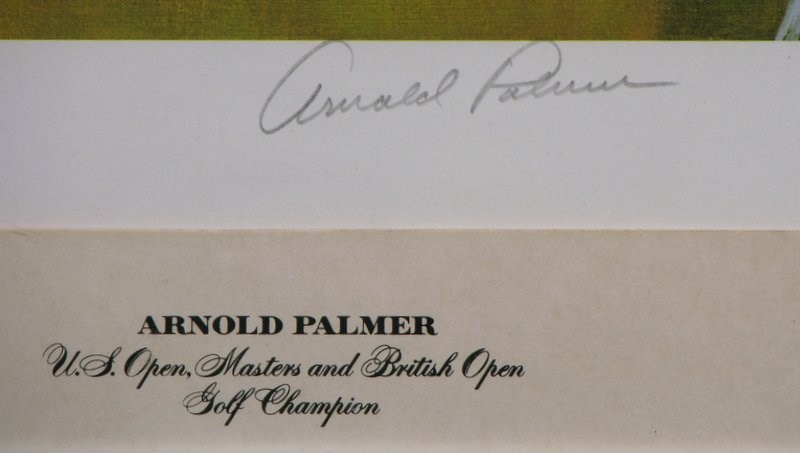 Arnold Palmer
ARNOLD PALMER
U.S. Open, Masters and British Open
Golf Champion